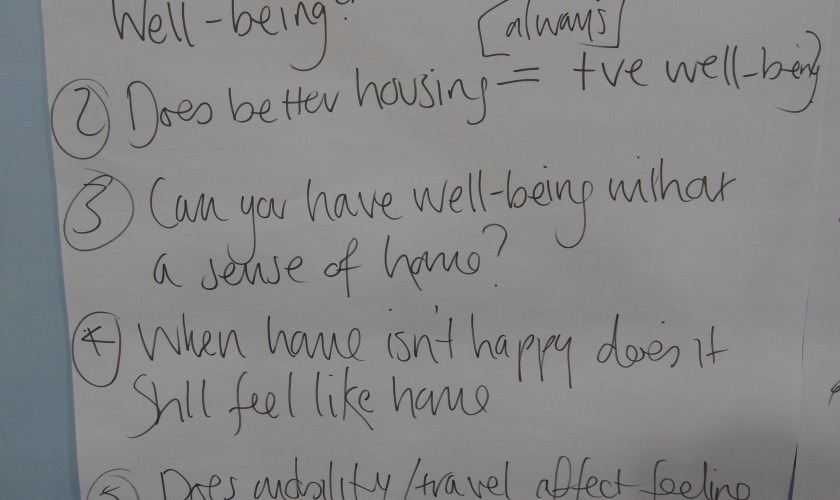 Well-being?
[always]
② Does better housing = +ve well-being
③ Can you have well-being without
a sense of home?
④ When home isn't happy does it
Still feel like home
⑤ Does mobility/travel affect feeling